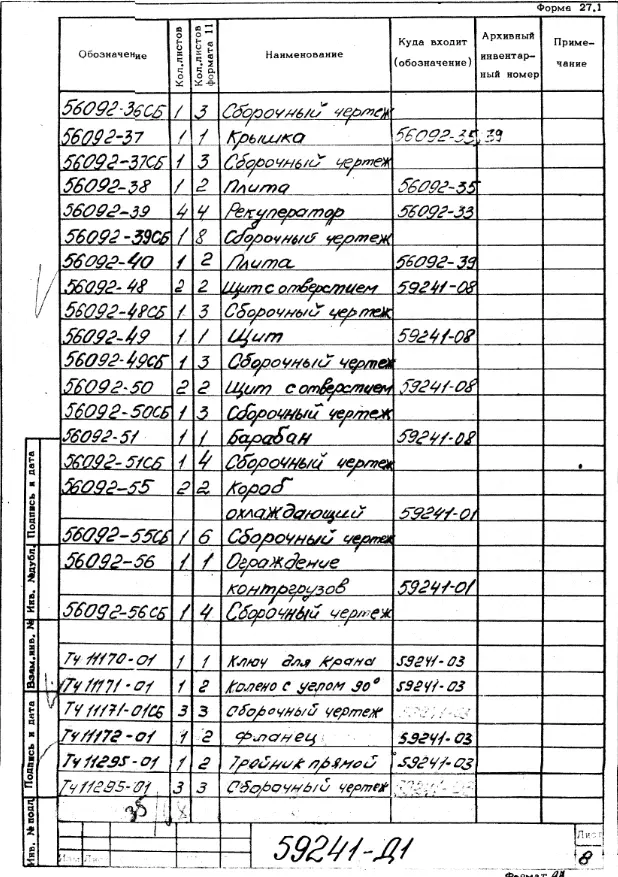 Форма 27.1
Обозначение Кол.листов Кол.листов формата 11 Наименование Куда входит (обозначение) Архивный инвентар-ный номер Приме-чание
56092-36СБ 1 3 Сборочный чертеж
56092-37 1 1 Крышка 56092-35,39
56092-37СБ 1 3 Сборочный чертеж
56092-38 1 2 Плита 56092-35
56092-39 4 4 Рекуператор 56092-33
56092-39СБ 1 8 Сборочный чертеж
56092-40 1 2 Плита 56092-39
56092-48 2 2 Щит с отверстием 59241-08
56092-48СБ 1 3 Сборочный чертеж
56092-49 1 1 Щит 59241-08
56092-49СБ 1 3 Сборочный чертеж
56092-50 2 2 Щит с отверстием 59241-08
56092-50СБ 1 3 Сборочный чертеж
56092-51 1 1 Барабан 59241-08
56092-51СБ 1 4 Сборочный чертеж
56092-55 2 2 Короб
охлаждающий 59241-01
56092-55СБ 1 6 Сборочный чертеж
56092-56 1 1 Ограждение
контргрузов 59241-01
56092-56СБ 1 4 Сборочный чертеж
Тч 11170-01 1 1 Ключ для крана 59241-03
Тч 11171-01 1 2 Колено с углом 90° 59241-03
Тч 11171-01СБ 3 3 Сборочный чертеж
Тч 11172-01 1 2 Фланец 59241-03
Тч 11295-01 1 2 Тройник прямой 59241-03
Тч 11295-01 3 3 Сборочный чертеж
Инв. № подл. Подпись и дата Взам.инв. № Инв. № дубл. Подпись и дата
59241-Д1
Лист
8
Формат